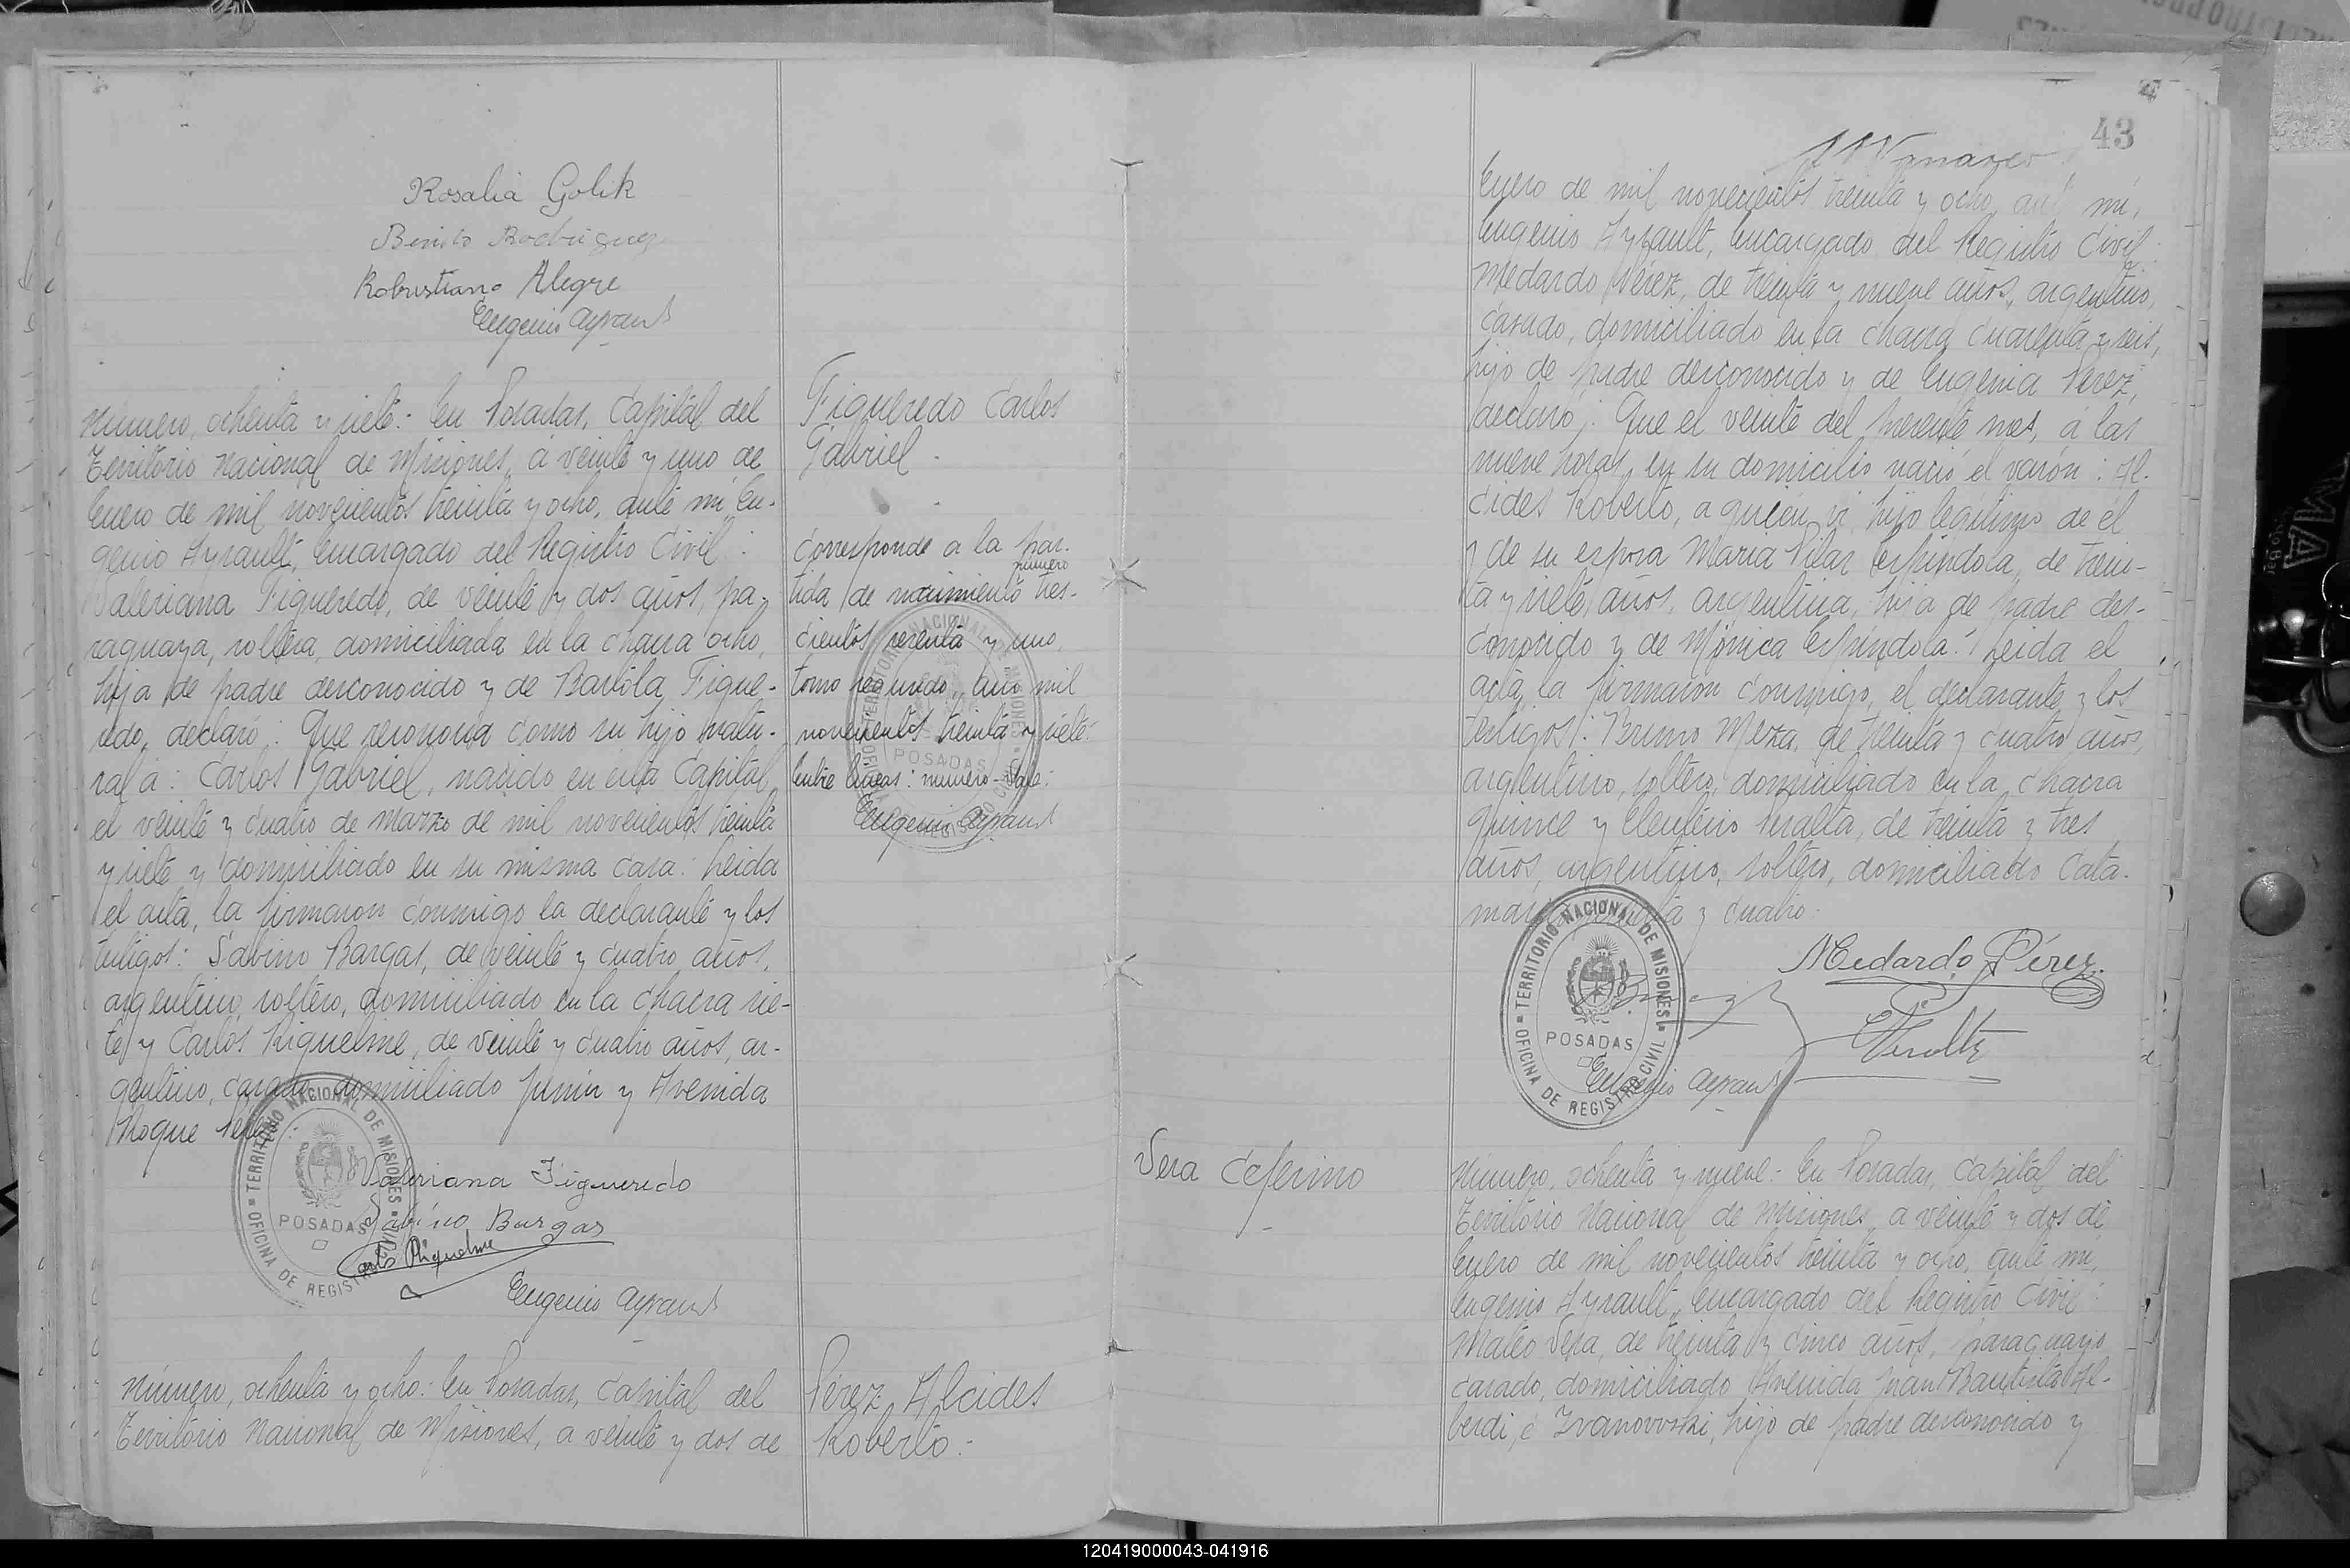 Rosalia Golik
Benito Rodriguez
Robustiano Alegre
Eugenio Ayrault
Número, ochenta y siete: En Posadas, Capital del
Territorio Nacional de Misiones, a veinte y uno de
Enero de mil novecientos treinta y ocho, ante mi Eu-
genio Ayrault, Encargado del Registro Civil:
Valeriana Figueredo, de veinte y dos años, pa-
raguaya, soltera, domiciliada en la chacra ocho,
hija de padre desconocido y de Bartola Figue-
redo, declaró: Que reconocia como su hijo natu-
ral a: Carlos Gabriel, nacido en esta Capital
el veinte y cuatro de marzo de mil novecientos treinta
y siete y domiciliado en su misma casa: Leida
el acta, la firmaron conmigo la declarante y los
testigos: Sabino Bargas, de veinte y cuatro años,
argentino, soltero, domiciliado en la chacra sie-
te y Carlos Riquelme, de veinte y cuatro años, ar-
gentino, casado, domiciliado Junin y Avenida
Roque
TERRITORIO NACIONAL DE MISIONES
OFICINA DE REGISTRO CIVIL
POSADAS
Valeriana Figueredo
Sabino Bargas
Carlos Riquelme
Eugenio Ayrault
Número, ochenta y ocho: En Posadas, Capital del
Territorio Nacional de Misiones, a veinte y dos de
Figueredo Carlos
Gabriel
Corresponde a la par-
número
tida de nacimiento tres-
cientos sesenta y uno,
tomo segundo, año mil
novecientos treinta y siete:
Entre lineas: número-Vale:
Eugenio Ayrault
TERRITORIO NACIONAL DE MISIONES
OFICINA DE REGISTRO CIVIL
POSADAS
Pérez Alcides
Roberto.-
43
Enero de mil novecientos treinta y ocho, ante mi,
Eugenio Ayrault, Encargado del Registro Civil:
Medardo Pérez, de treinta y nueve años, argentino,
casado, domiciliado en la chacra cuarenta y seis,
hijo de padre desconocido y de Eugenia Pérez,
declaró: Que el veinte del presente mes, á las
nueve horas, en su domicilio nació el varón: Al-
cides Roberto, a quien vi, hijo legitimo de él
y de su esposa Maria Pilar Espindola, de trein-
ta y siete años, argentina, hija de padre des-
conocido y de Mónica Espindola: Leida el
acta, la firmaron conmigo, el declarante y los
testigos: Bruno Meza, de treinta y cuatro años,
argentino, soltero, domiciliado en la chacra
quince y Eleuterio Peralta, de treinta y tres
años, argentino, soltero, domiciliado Cata-
marca y cuatro:
TERRITORIO NACIONAL DE MISIONES
OFICINA DE REGISTRO CIVIL
POSADAS
Medardo Pérez
E Peralta
Eugenio Ayrault
Vera Ceferino
Número, ochenta y nueve: En Posadas, Capital del
Territorio Nacional de Misiones, a veinte y dos de
Enero de mil novecientos treinta y ocho, ante mi,
Eugenio Ayrault, Encargado del Registro Civil:
Mateo Vera, de treinta y cinco años, paraguayo
casado, domiciliado Avenida Juan Bautista Al-
berdi, é Ivanovoski, hijo de padre desconocido y
120419000043-041916